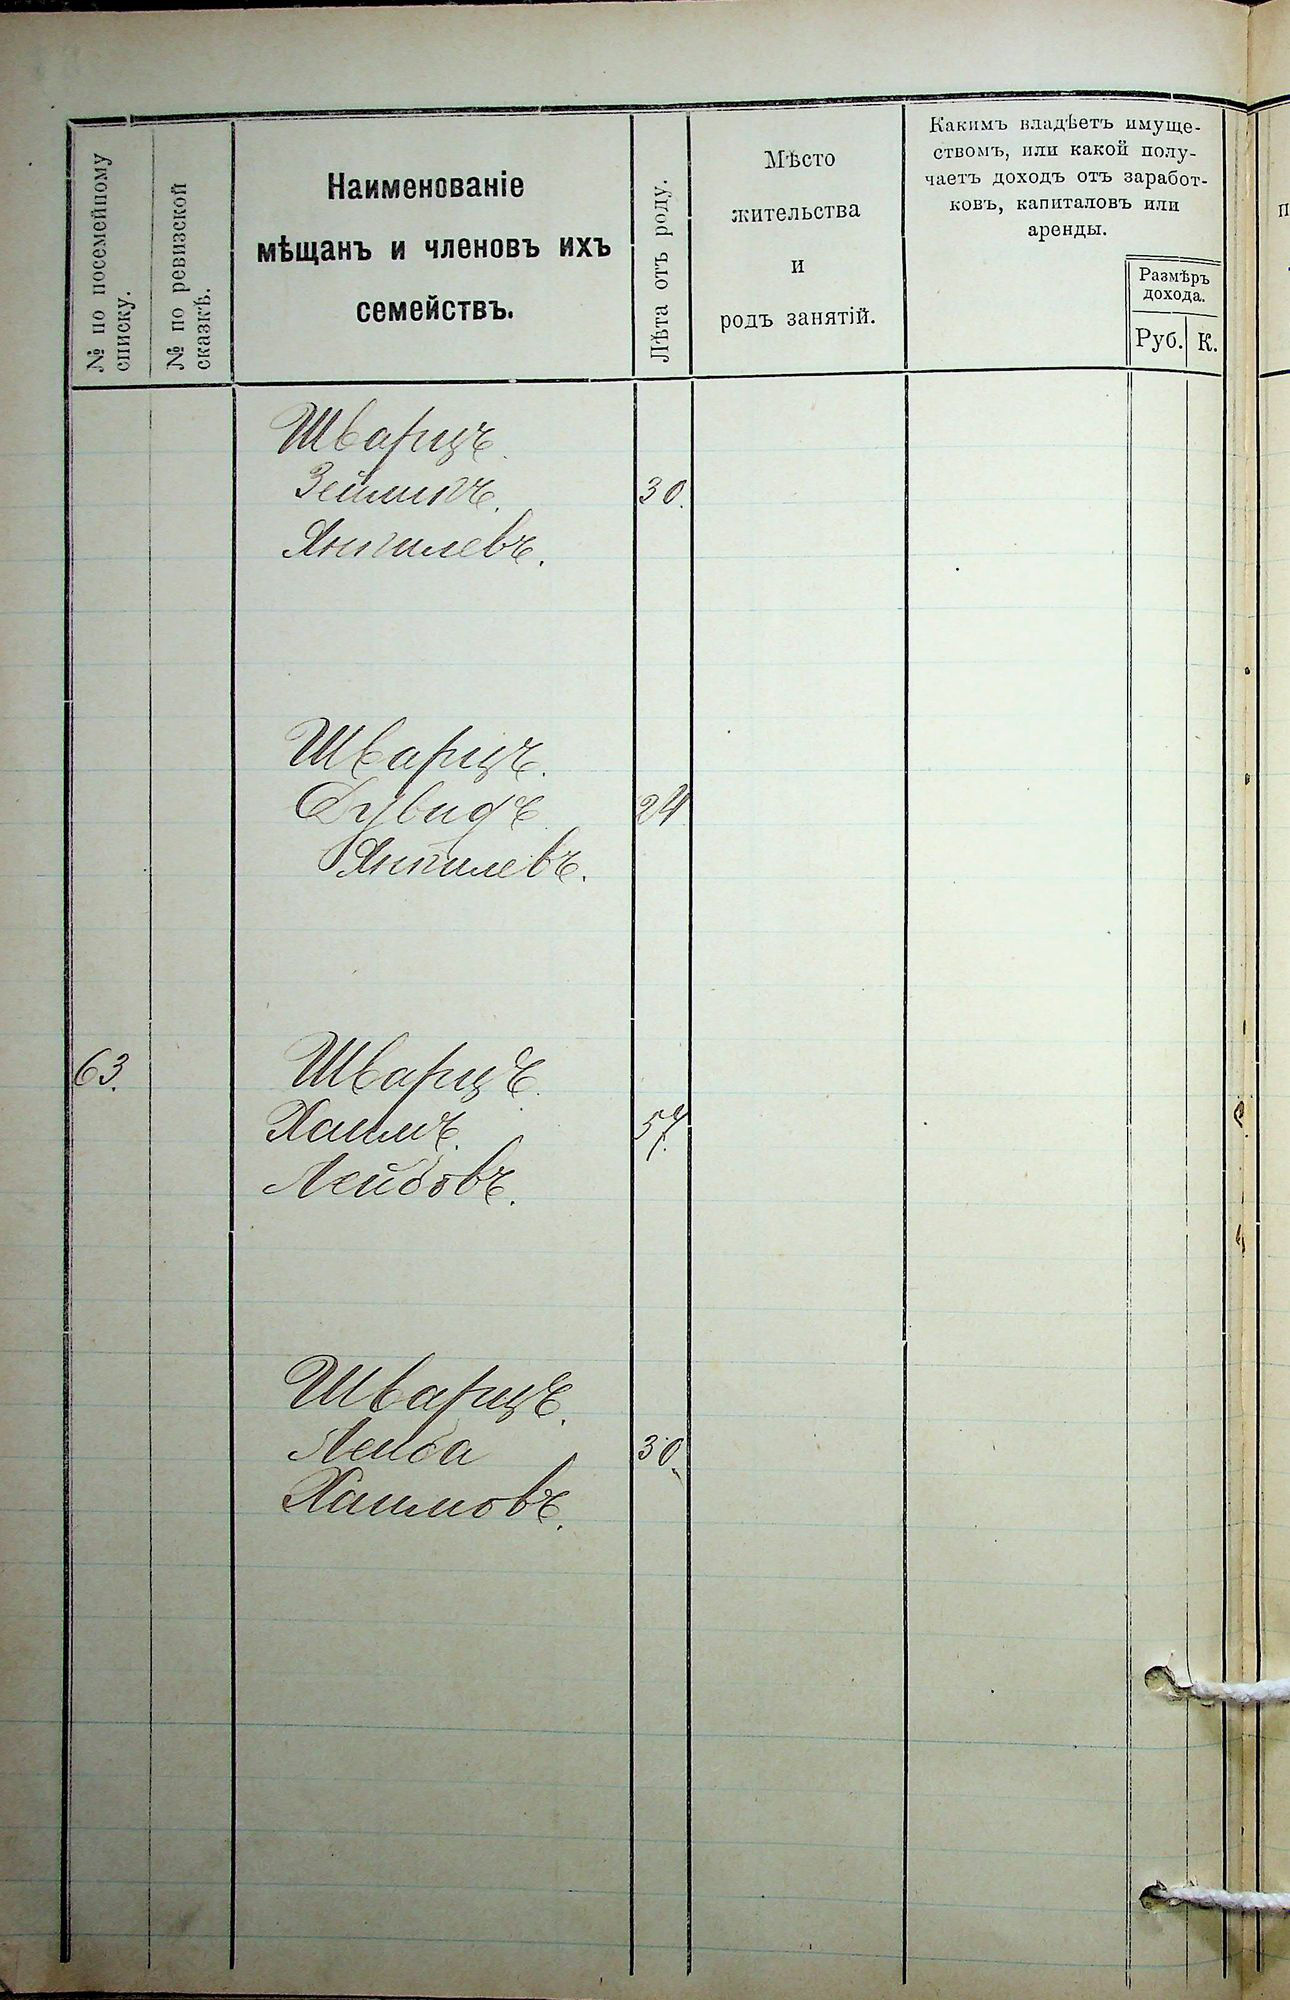 № по посемейному
списку.
№ по ревизской
сказкѣ.
Наименованіе
мѣщанъ и членовъ ихъ
семействъ.
Лѣта отъ роду.
Мѣсто
жительства
и
родъ занятій.
Какимъ владѣетъ имуще-
ствомъ, или какой полу-
чаетъ доходъ отъ заработ-
ковъ, капиталовъ или
аренды.
Размѣръ
дохода.
Руб. К.
Шварцъ.
Зейликъ. 30.
Янкилевъ.
Шварцъ.
Дувидъ 24
Янкилевъ.
63. Шварцъ.
Хаимъ. 57.
Лейбовъ.
Шварцъ.
Лейба 30.
Хаимовъ.